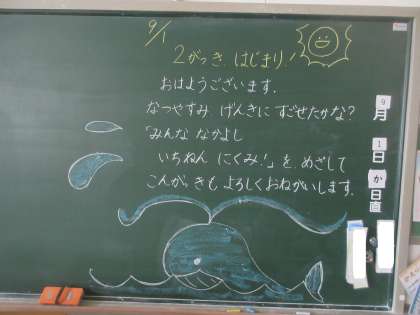 9/1
2がっき はじまり!
おはようございます.
なつやすみ げんきに すごせたかな?
「みんな なかよし
いちねん にくみ!」を めざして
こんがっきも よろしくおねがいします.
9
月
1
日
か
日直